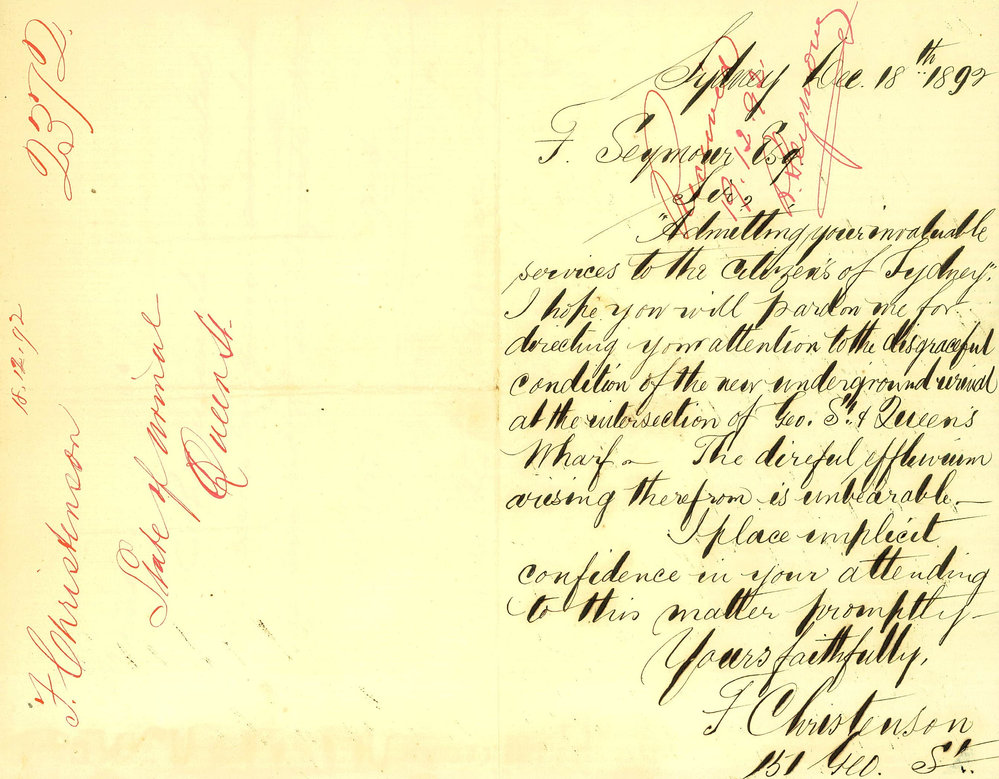 Sydney Dec. 18th 1892
F. Seymour Esq
Sir,
"Admitting your invaluable
services to the citizen's of Sydney",
I hope you will pardon me for
directing your attention to the disgraceful
condition of the new underground urinal
at the intersection of Geo. St. & Queen's
Wharf – The direful effluvium
arising therefrom is unbearable. –
I place implicit
confidence in your attending
to this matter promptly –
Yours faithfully,
F Christenson
151 Geo. St.
Received
19.12.92
Seymour
2372
18.12.92
F. Christenson
State of Urinal
Queen St.